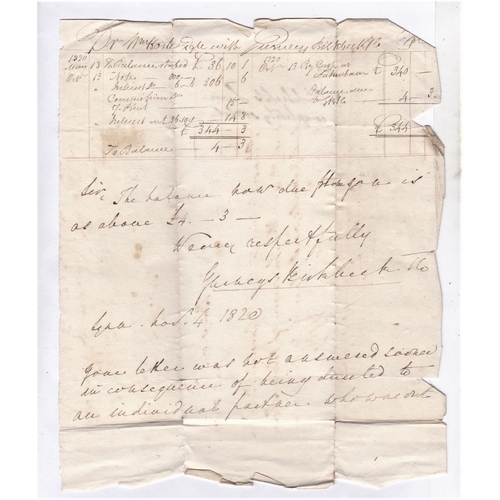 Dr Wm Esqr with Gurneys Birkbeck & Co Cr
1820
13 To Balance £ 36 10 1
Octr 13 Note 300 6 306 6
Commission
15
Interest 14 8
£ 344 3
To Balance 4 3
1820
Octr 13 By Cash 340
Balance due
4 3
£ 344
Sir, The balance now due from you is
as above £4 - 3 -
We are respectfully
Gurneys Birkbeck & Co
Lynn Novr 4 1820
Your letter was not answered sooner
in consequence of being directed to
an individual partner who was out